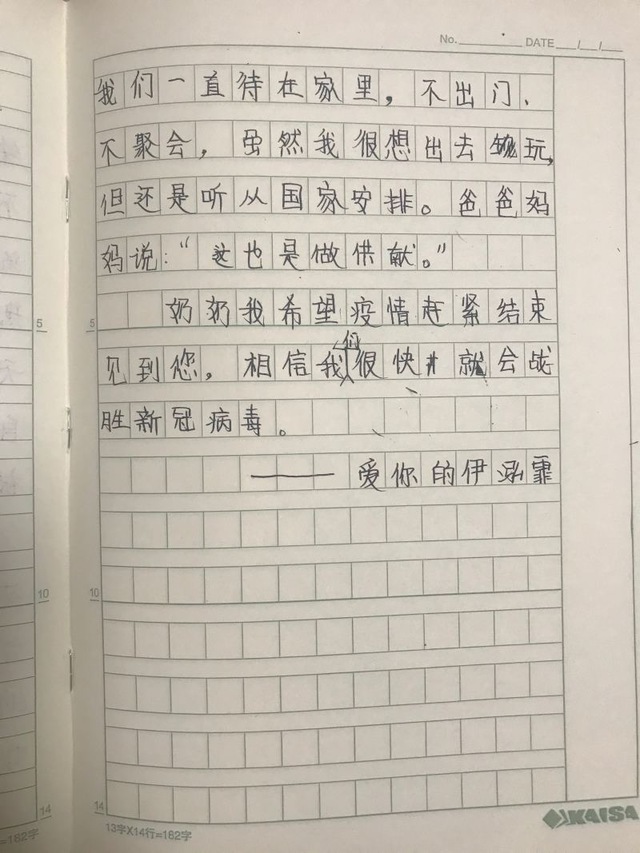 No. DATE / /
我们一直待在家里，不出门、
不聚会，虽然我很想出去玩，
但还是听从国家安排。爸爸妈
妈说：“这也是做供献。”
奶奶我希望疫情赶紧结束
5
5
见到您，相信我们很快就会战
胜新冠病毒。
——爱你的伊泓霏
10
10
14
14
13字X14行=182字
=182字
KAISA